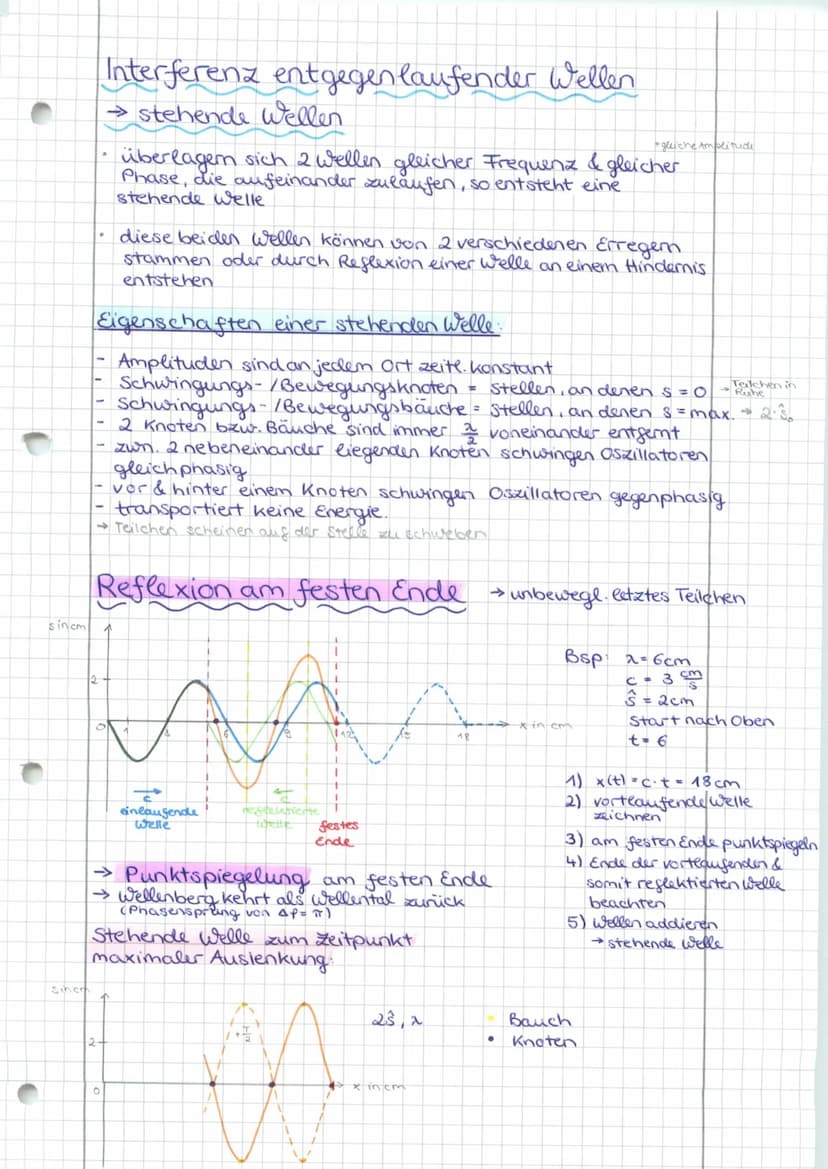 Interferenz entgegenlaufender Wellen
→ stehende Wellen
+gleiche Amplitude
· überlagern sich 2 Wellen gleicher Frequenz & gleicher
Phase, die aufeinander zulaufen, so entsteht eine
stehende Welle
· diese beiden Wellen können von 2 verschiedenen Erregern
stammen oder durch Reflexion einer Welle an einem Hindernis
entstehen
Eigenschaften einer stehenden Welle:
- Amplituden sind an jedem Ort zeitl. konstant
- Schwingungs-/Bewegungsknoten = Stellen, an denen s = 0 → Teilchen in Ruhe
- Schwingungs-/Bewegungsbäuche = Stellen, an denen s = max. → 2·ŝ₀
- 2 Knoten bzw. Bäuche sind immer λ/2 voneinander entfernt
- zwn. 2 nebeneinander liegenden Knoten schwingen Oszillatoren
gleichphasig
- vor & hinter einem Knoten schwingen Oszillatoren gegenphasig
- transportiert keine Energie.
→ Teilchen scheinen auf der Stelle zu schweben
Reflexion am festen Ende → unbewegl. letztes Teilchen
s in cm
2
0 1 6 9 12 15 18 x in cm
c
einlaufende
Welle
c
reflektierte
Welle
festes
Ende
Bsp: λ = 6cm
c = 3 cm/s
ŝ = 2cm
Start nach Oben
t = 6
1) x(t) = c·t = 18cm
2) vortlaufende Welle
zeichnen
3) am festen Ende punktspiegeln
4) Ende der vortlaufenden &
somit reflektierten Welle
beachten
5) Wellen addieren
→ stehende Welle
→ Punktspiegelung am festen Ende
→ Wellenberg kehrt als Wellental zurück
(Phasensprung von Δφ = π)
Stehende Welle zum Zeitpunkt
maximaler Auslenkung:
s in cm
2
0
+T/2
x in cm
2ŝ, λ
Bauch
• Knoten